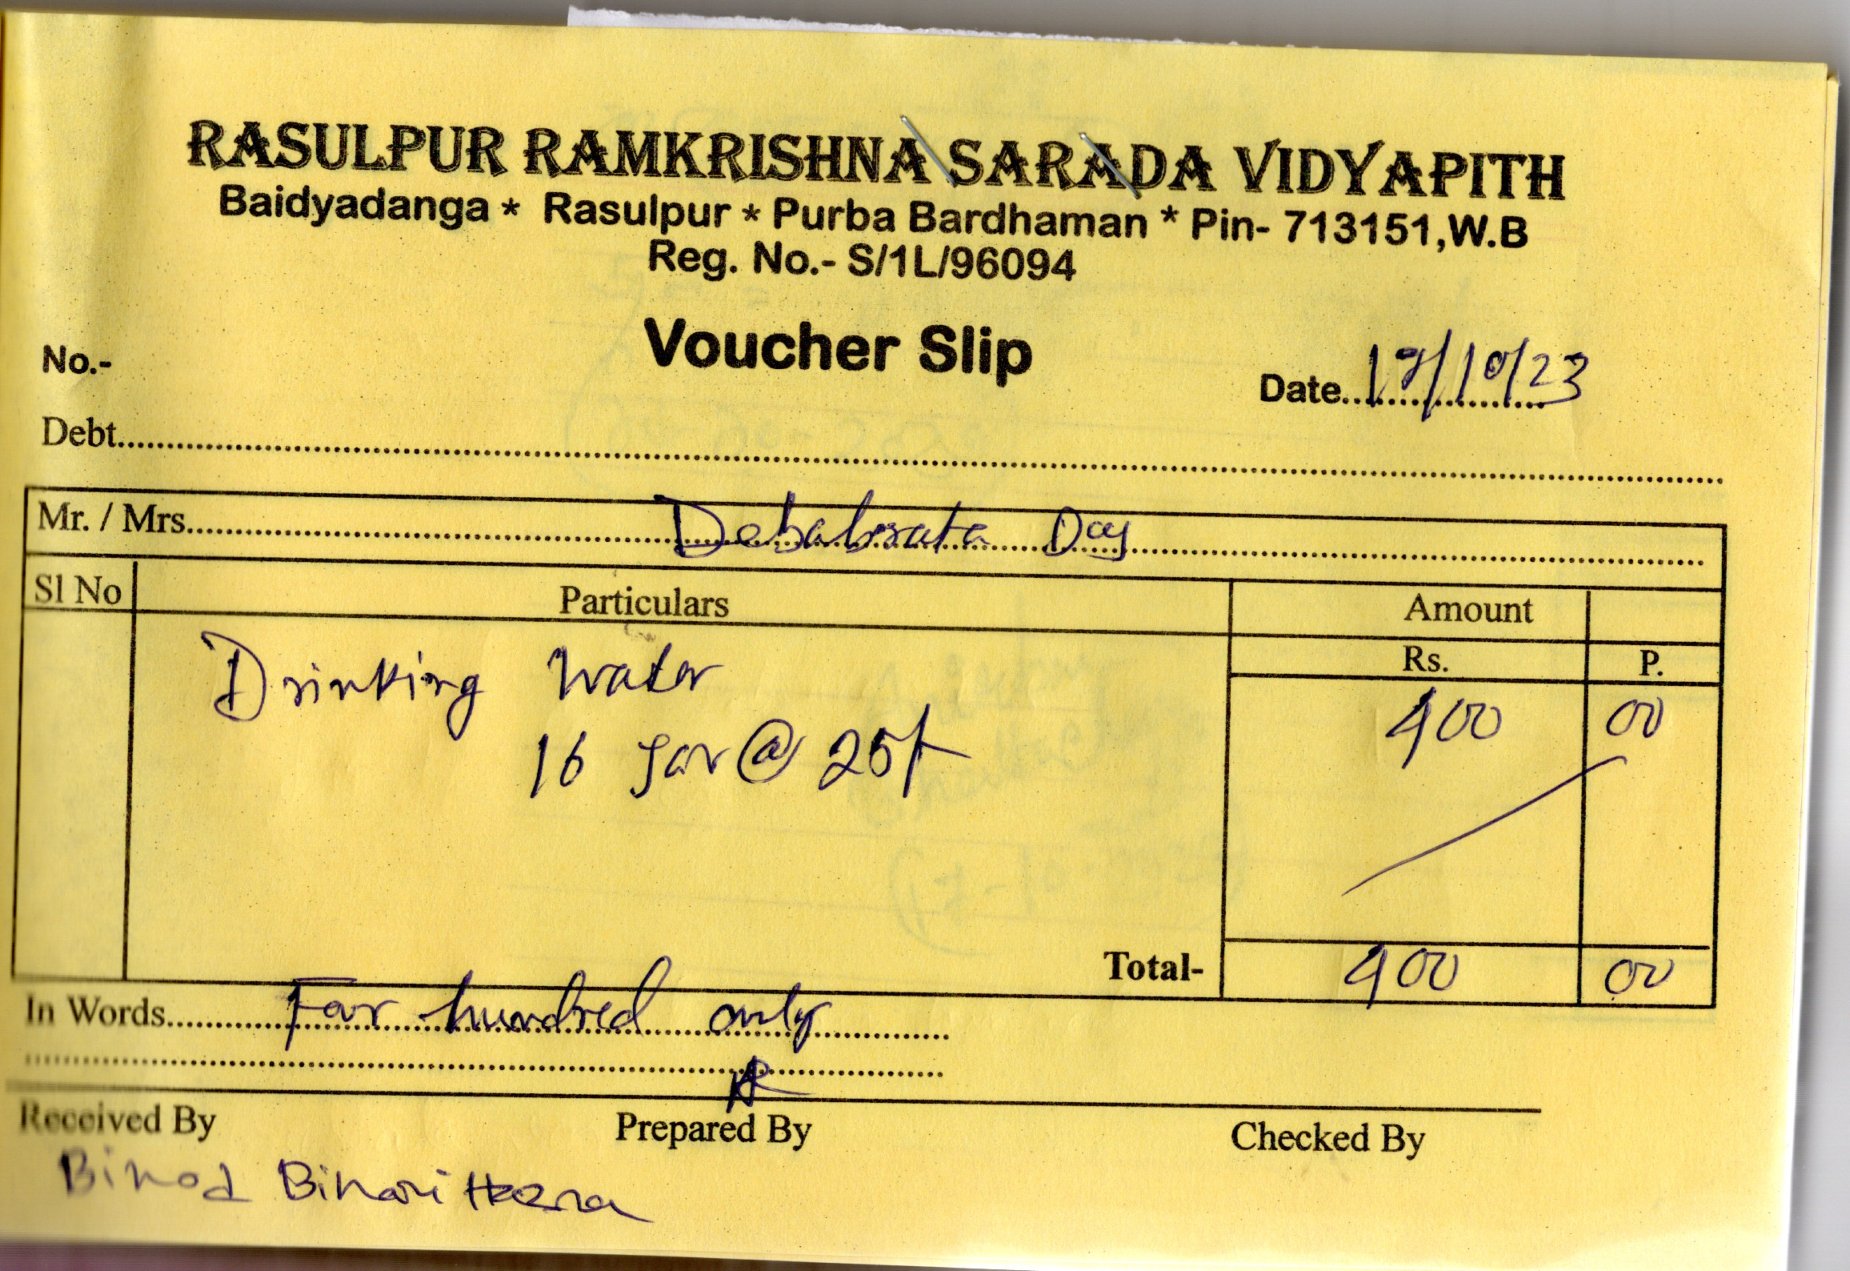 RASULPUR RAMKRISHNA SARADA VIDYAPITH
Baidyadanga * Rasulpur * Purba Bardhaman * Pin- 713151,W.B
Reg. No.- S/1L/96094
Voucher Slip
No.-
Date.. /10/23
Debt
Mr. / Mrs. Debabrata Dey
Sl No Particulars Amount
Rs. P.
Drinking Water 400 00
16 Jar @ 25/-
Total- 400 00
In Words Four hundred only
Received By Prepared By Checked By
Binod Bihari